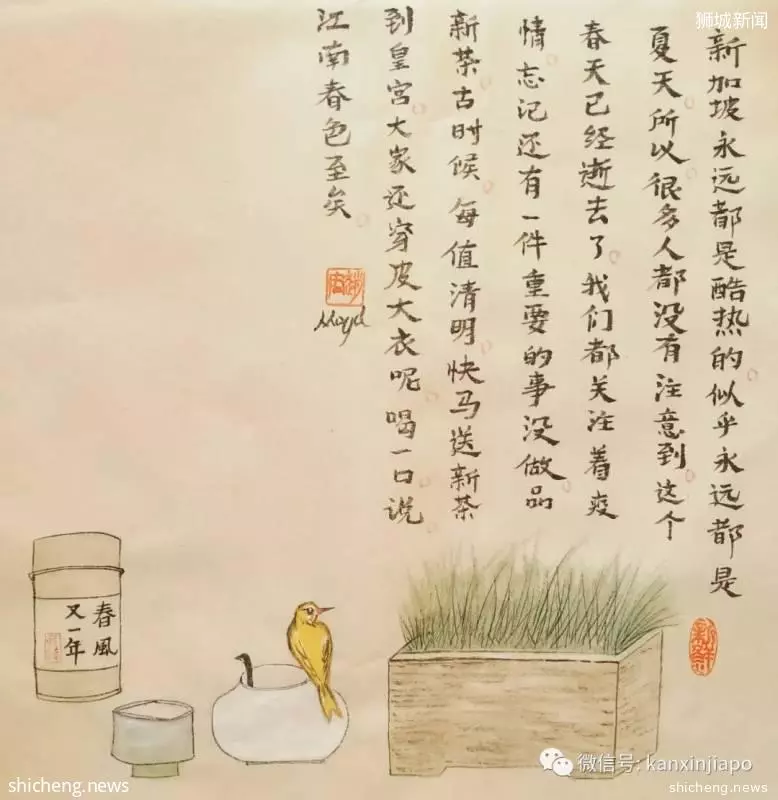 狮城新闻
新加坡永远都是酷热的似乎永远都是
夏天所以很多人都没有注意到这个
春天已经逝去了我们都关注着疫
情忘记还有一件重要的事没做品
新茶古时候每值清明快马送新茶
到皇宫大家还穿皮大衣呢喝一口说
江南春色至矣
春風
又一年
微信号: kanxinjiapo
shicheng.news
shicheng.news